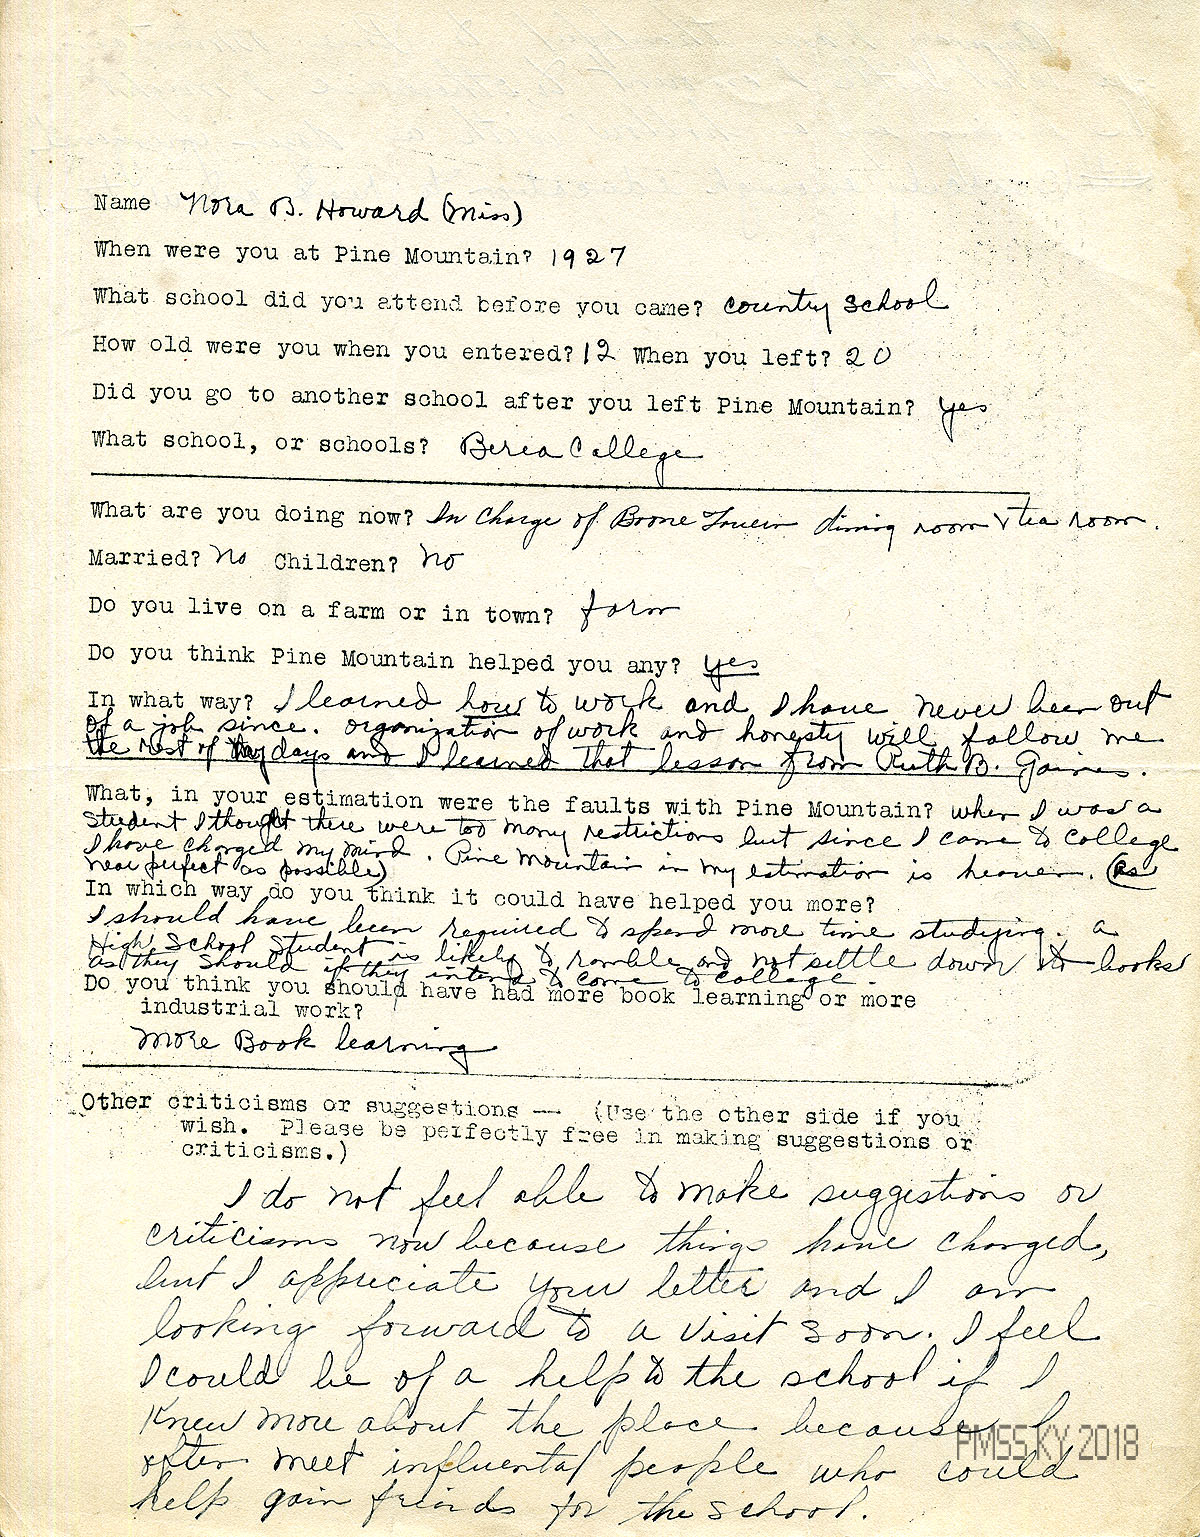 Name Nora B. Howard (Miss)
When were you at Pine Mountain? 1927
What school did you attend before you came? country school
How old were you when you entered? 12 When you left? 20
Did you go to another school after you left Pine Mountain? yes
What school, or schools? Berea College
What are you doing now? In Charge of Boone Tavern dining room & tea room.
Married? No Children? No
Do you live on a farm or in town? farm
Do you think Pine Mountain helped you any? yes
In what way? I learned how to work and I have never been out
of a job since. organization of work and honesty will follow me
the rest of my days and I learned that lesson from Ruth B. Gaines.
What, in your estimation were the faults with Pine Mountain? when I was a
student I thought there were too many restrictions but since I came to college
I have changed my mind. Pine Mountain in my estimation is heaven. (as
near perfect as possible)
In which way do you think it could have helped you more?
I should have been required to spend more time studying. a
High School Student is likely to ramble and not settle down to books
as they should if they intend to come to college.
Do you think you should have had more book learning or more
industrial work?
More Book learning
Other criticisms or suggestions -- (Use the other side if you
wish. Please be perfectly free in making suggestions or
criticisms.)
I do not feel able to make suggestions or
criticisms now because things have changed,
but I appreciate your letter and I am
looking forward to a visit soon. I feel
I could be of a help to the school if I
knew more about the place because I
often meet influental people who could
help gain friends for the school.
PMSS.KY 2018